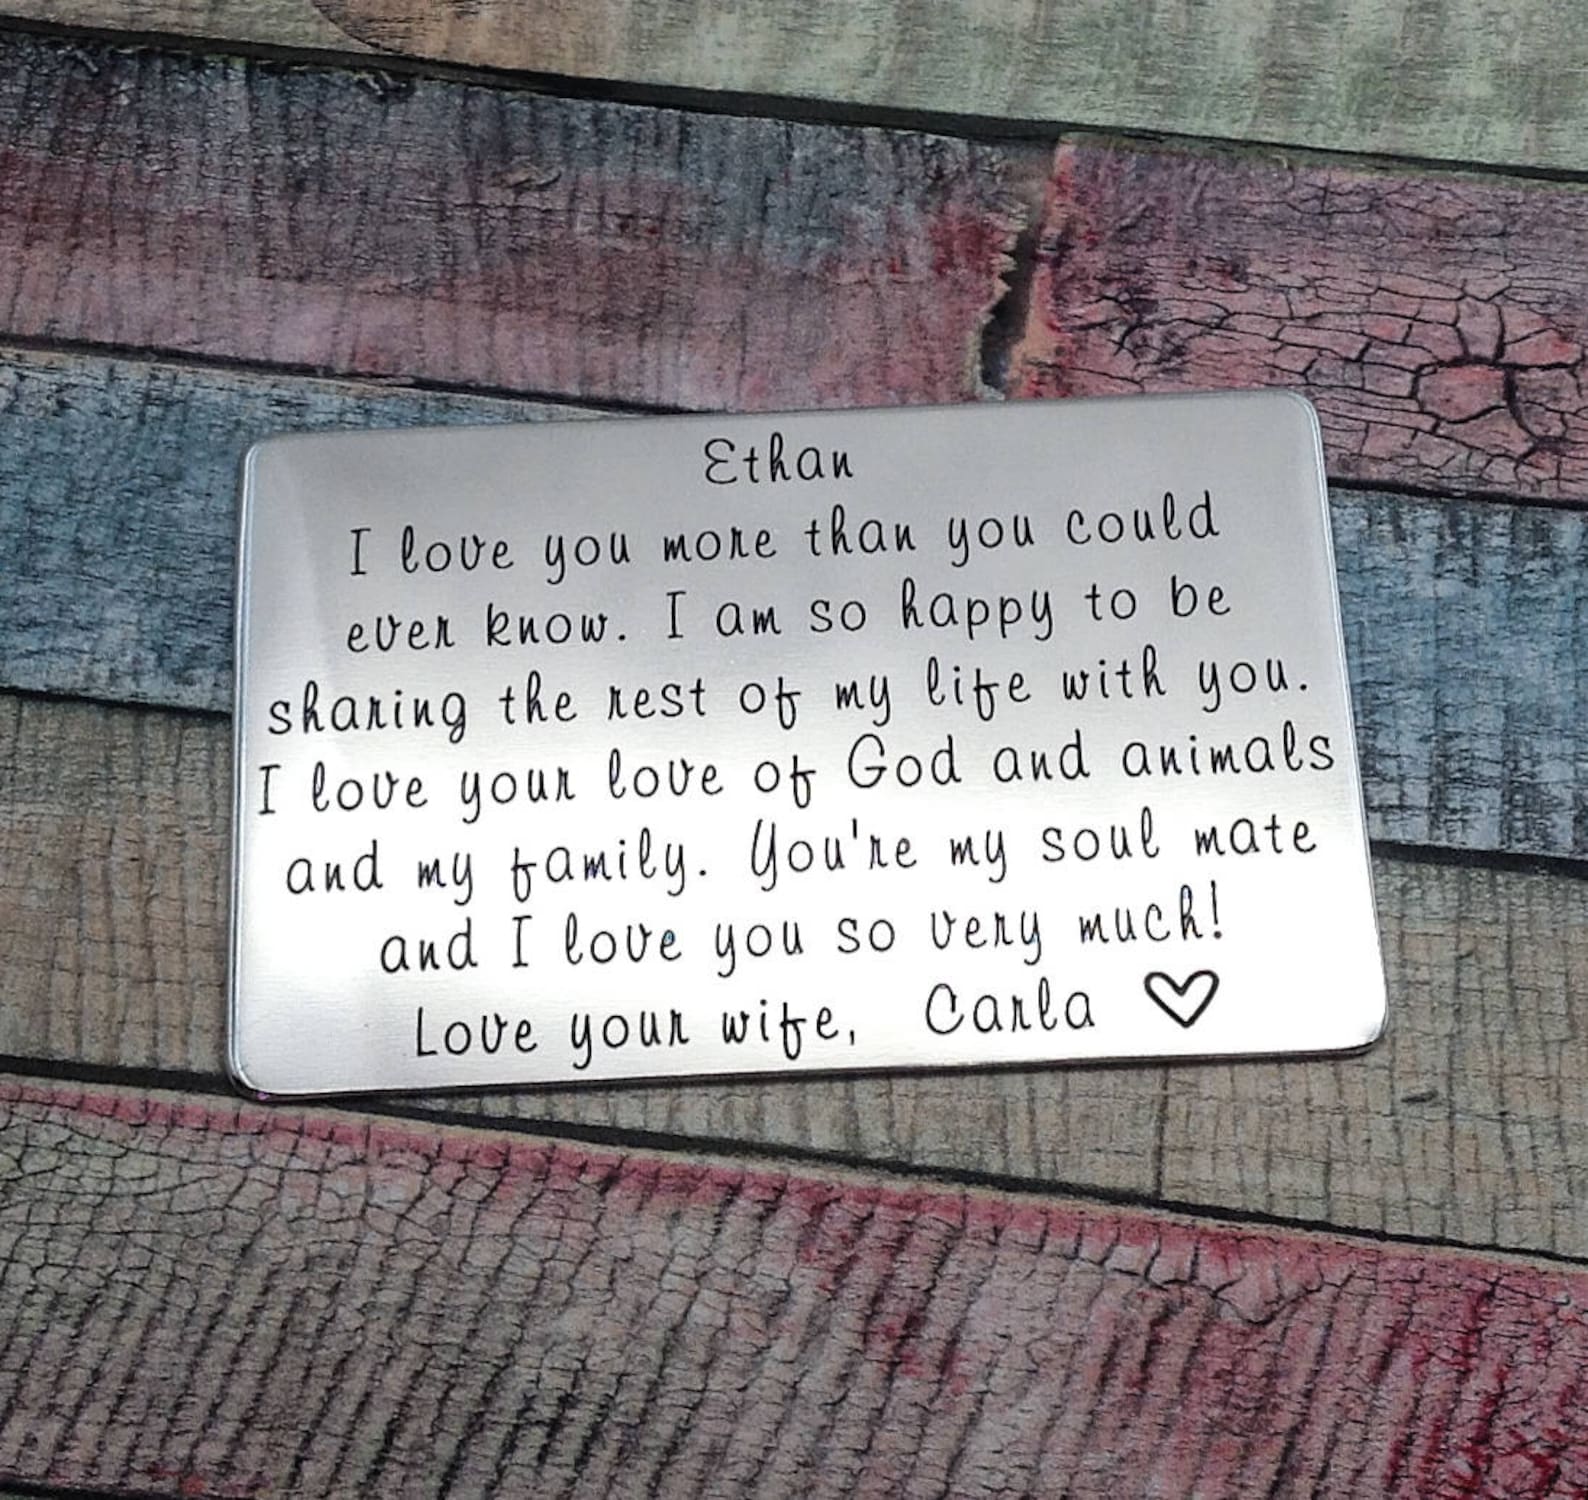 Ethan
I love you more than you could
ever know. I am so happy to be
sharing the rest of my life with you.
I love your love of God and animals
and my family. You're my soul mate
and I love you so very much!
Love your wife, Carla ♡